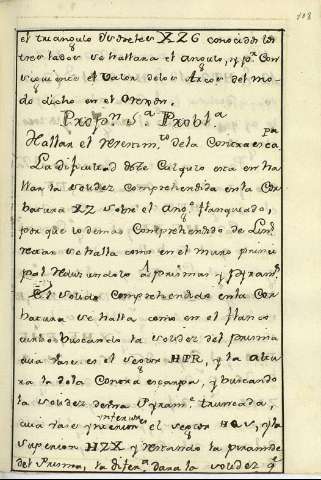 118
el triangulo XZG conocidos los
tres lados se hallara el angulo, y p.r con
siguiente el valor de los Arcos del mo
do dicho en el
Propn. 5.a Probl.a
Hallar el de la Contraesca
La dificultad deste Calculo esta en ha
llar la solidez Comprehendida en la Cor
batura XZ sobre el ang.o flanqueado,
por que lo demas Comprehendido de
rectas se halla como en el muro princi
pal reduciendolo a Prismas y Pyram.s
El Solido Comprehendido en la Cor
batura se halla como en el flanco
curbo buscando la solidez del prisma
cuia vase es el sector HPR, y la altu
ra la de la Contra escarpa, y buscando
la solidez de una Pyram.e truncada,
cuia vase ynferior es el sector HQS, y la
superior HZX y restando la piramide
del Prisma, la difer.a dara la solidez q.e